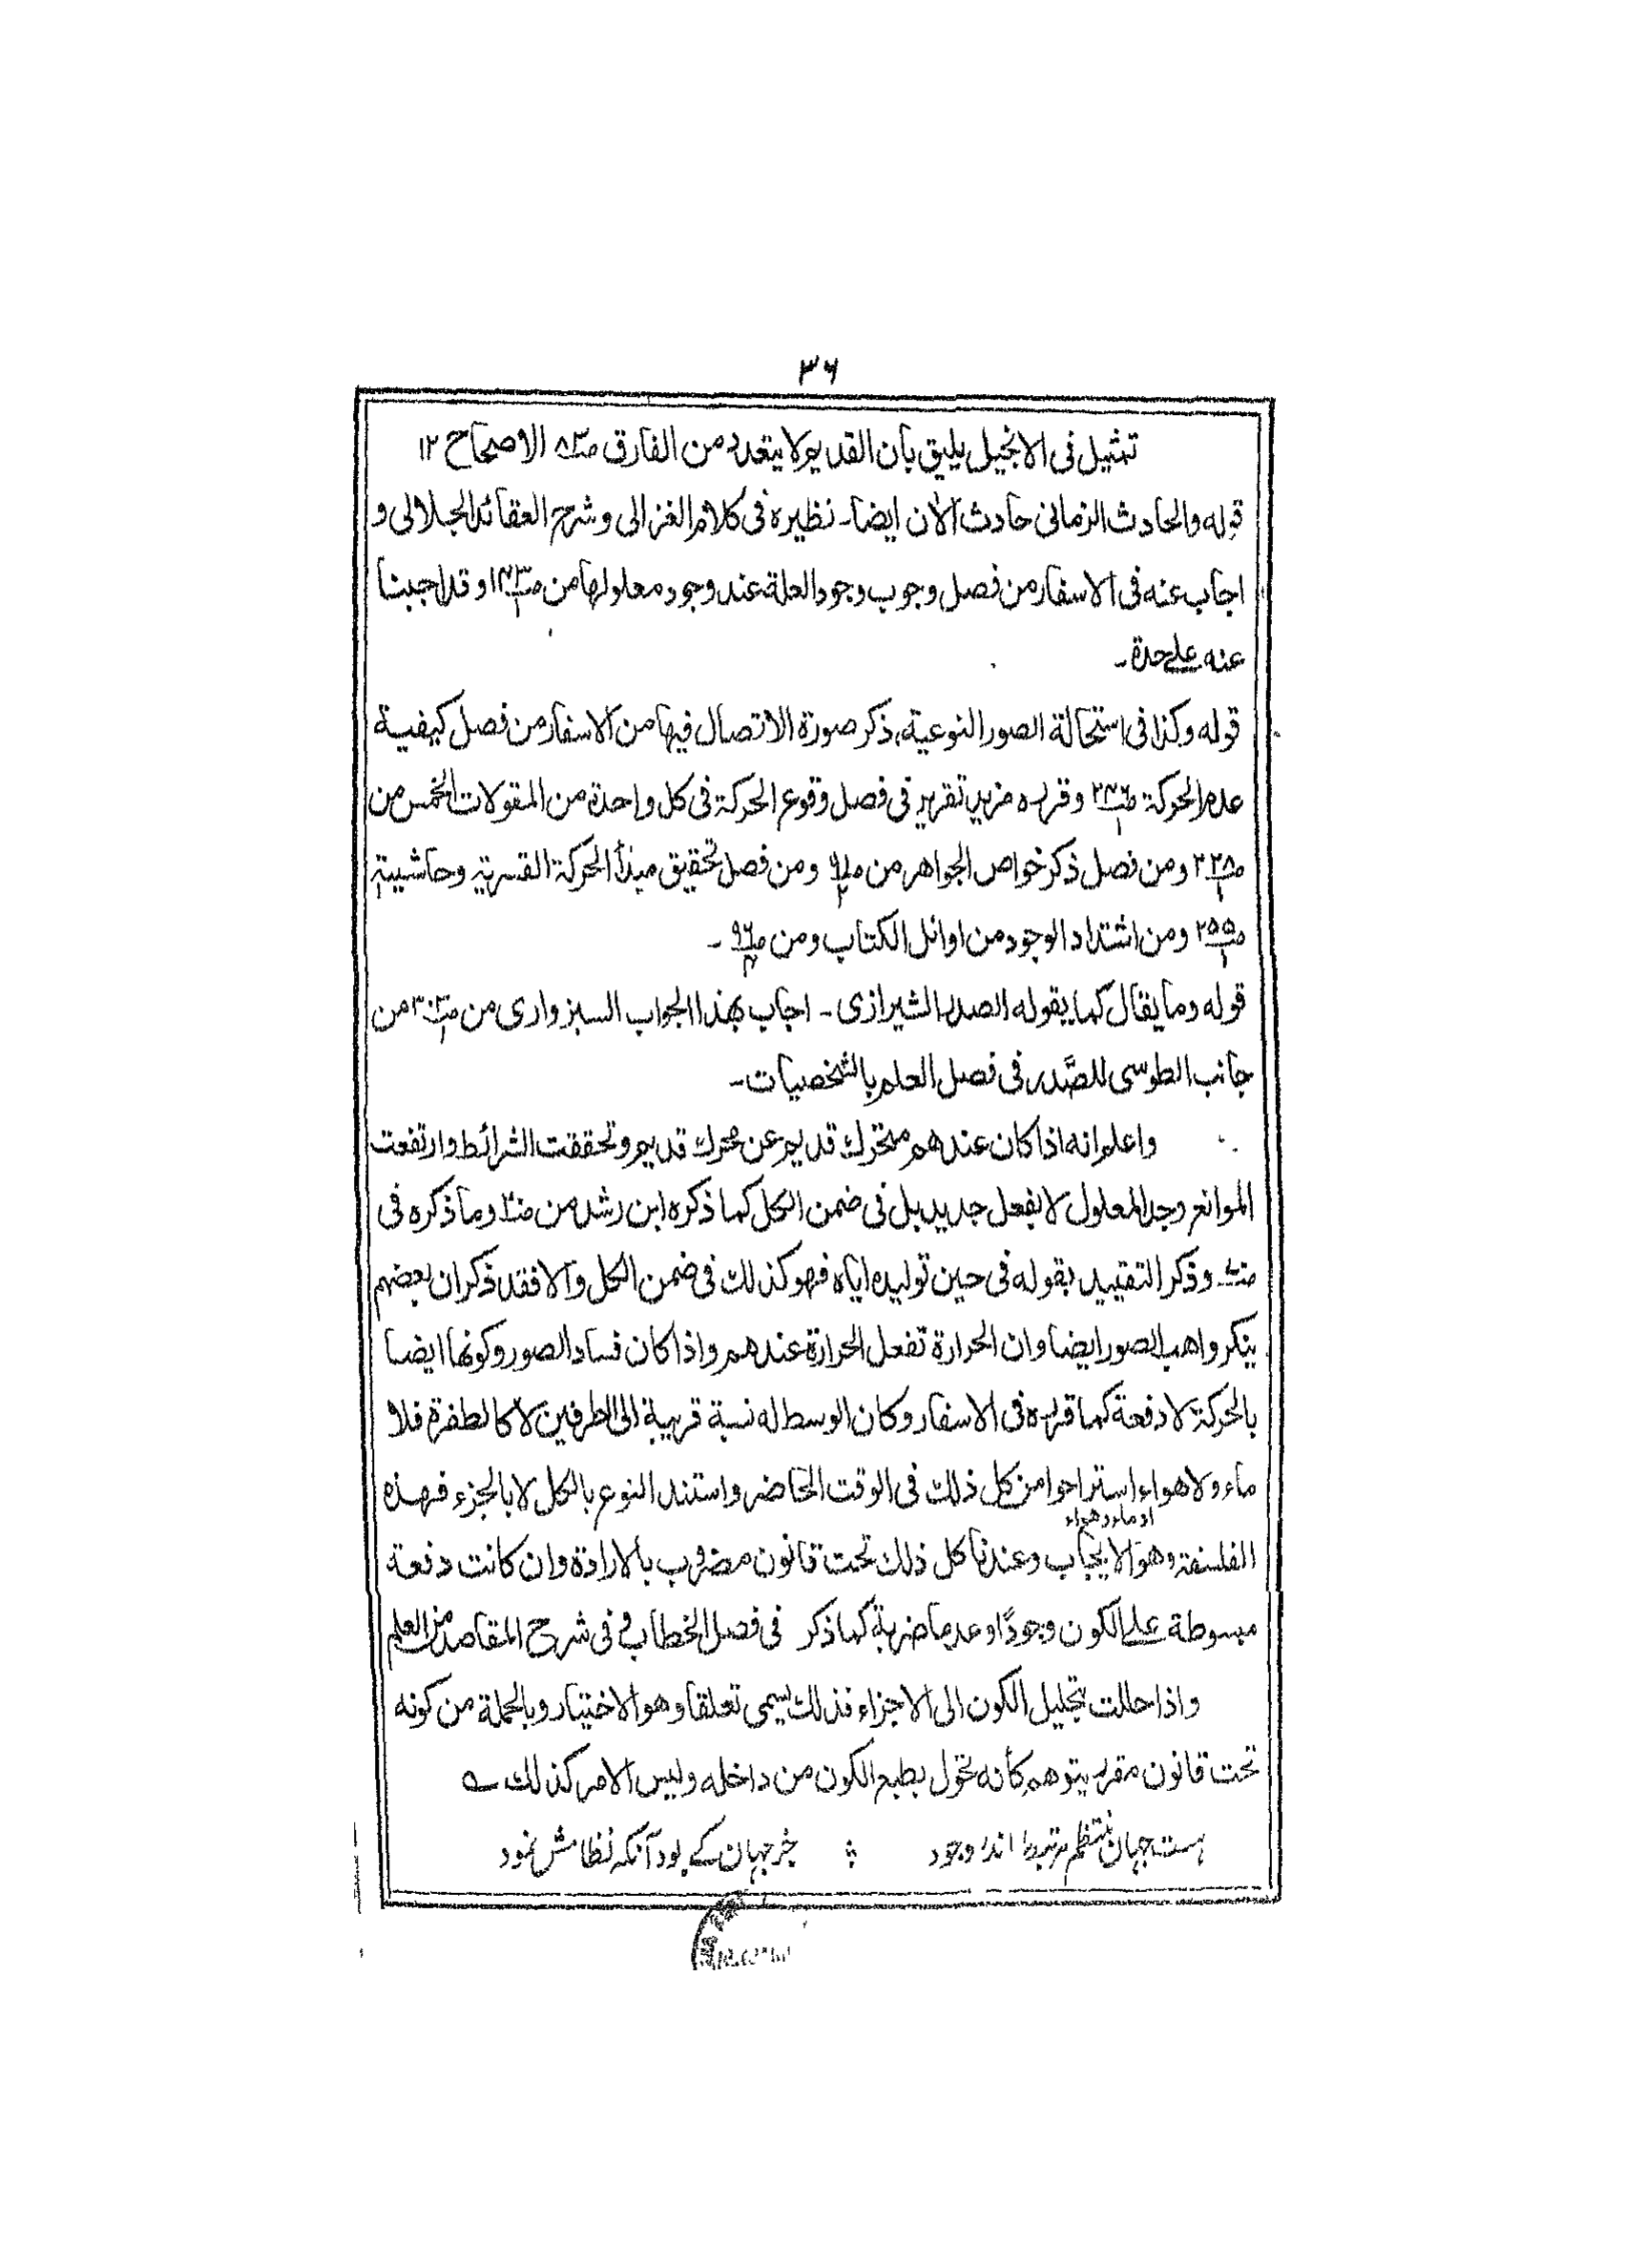 ۳۶
تمثيل فى الانجيل يليق بان القديم لا يتعدد من الفارق الاصحاح ۱۲
قوله والحادث الزمانى حادث الأن ايضا۔ نظيره فى كلام الغزالى وشرح العقائد الجلالى و
اجاب عنه فى الاسفار من فصل وجوب وجود العلة عند وجود معلولها من وقد اجبنا
عنه علے حدة۔
قوله وكذا فى استحالة الصور النوعية، ذكر صورة الاتصال فيها من الاسفار من فصل كيفية
عدم الحركة ص۲۳۶/۱ وقرره مزيد تقرير فى فصل وقوع الحركة فى كل واحدة من المقولات الخمس من
ص۲۲۸/۱ ومن فصل ذكر خواص الجواهر من ومن فصل تحقيق مبدأ الحركة القسرية وحاشيته
ص۲۵۵/۱ ومن اشتداد الوجود من اوائل الكتاب ومن ۔
قوله وما يقال كما يقوله الصدر الشيرازى۔ اجاب بهذا الجواب السبزوارى من من
جانب الطوسى للصَّدر فى فصل العلم بالشخصيات۔
واعلم انه اذا كان عندهم متحرك قديم عن محرك قديم وتحققت الشرائط وارتفعت
الموانع وجد المعلول لا بفعل جديد بل فى ضمن الكل كما ذكره ابن رشد من وما ذكره فى
وذكر التقييد بقوله فى حين توليده اياه فهو كذلك فى ضمن الكل والا فقد ذكر ان بعضهم
ينكر واهب الصور ايضا وان الحرارة تفعل الحرارة عندهم واذا كان فساد الصور وكونها ايضا
بالحركة لا دفعة كما قرره فى الاسفار وكان الوسط له نسبة قريبة الى الطرفين لا كالطفرة فلا
ماء ولا هواء استراحوا من كل ذلك فى الوقت الحاضر واستند النوع بالكل لا بالجزء فهذه
او ماء وهواء
الفلسفة وهو الايجاب وعندنا كل ذلك تحت قانون مضروب بالارادة وان كانت دفعة
مبسوطة علے الكون وجودًا وعدما ضربة كما ذكر فى فصل الخطاب وفى شرح المقاصد من العلم
واذا حللت تحليل الكون الى الاجزاء فذلك يسمى تعلقا وهو الاختيار وبالجملة من كونه
تحت قانون مقرر يتوهم كأنه تحول بطبع الكون من داخله وليس الامر كذلك ے
ہست جہان منتظم مرتبط اندر وجود ؞ جز جہان کے بود آنکہ نظامش نمود